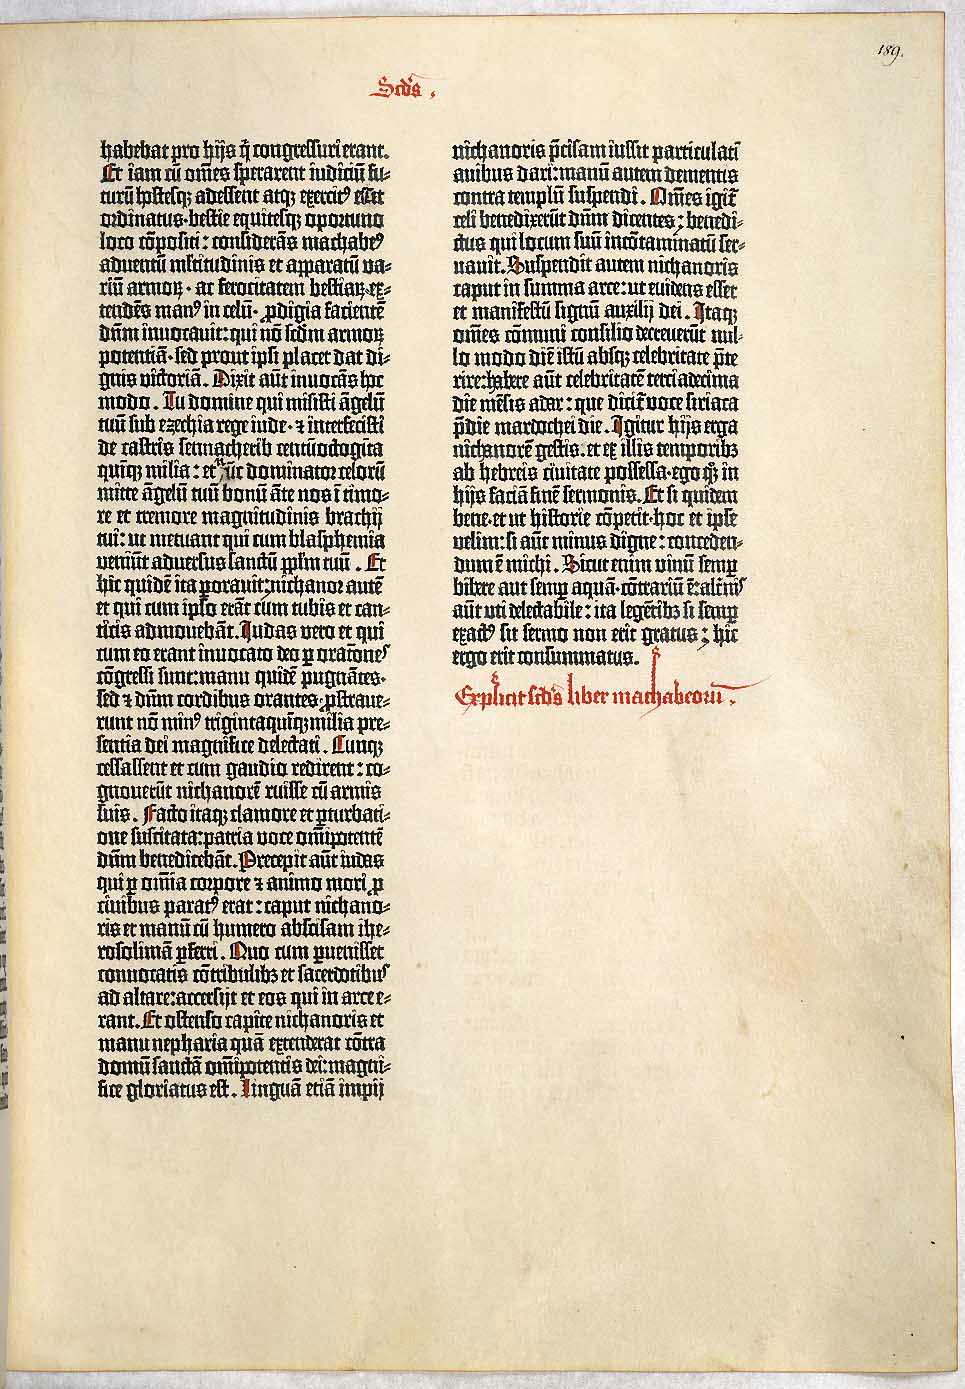 189.
Scd's .
habebat pro hijs q̄ congressuri erant.
Et iam cū om̄es sperarent iudiciū fu-
turū hostesq; adessent atq; exercit9 esset
ordinatus · bestie equitesq; oportuno
loco cōpositi : considerās machabe9
aduentū ml̄titudinis et apparatū va-
riū armoꝝ · ac ferocitatem bestiaꝝ · ex-
tendēs man9 in celū · ꝓdigia facientē
dn̄m inuocauit : qui nō scd̄m armoꝝ
potentiā · sed prout ipsi placet dat di-
gnis victoriā . Dixit aūt inuocās hoc
modo . Tu domine qui misisti āgelū
tuū sub ezechia rege iude · ⁊ interfecisti
de castris sennacherib centūoctogīta
quīq; milia : et nūc dominator celorū
mitte āgelū tuū bonū āte nos ī timo-
re et tremore magnitudinis brachij
tui : ut metuant qui cum blasphemia
veniūt aduersus sanctū pp̄lm tuū . Et
hic quidē ita ꝑorauit : nichanor autē
et qui cum ipso erāt cum tubis et can-
ticis admouebāt . Iudas vero et qui
cum eo erant inuocato deo ꝑ orat̄ones
cōgressi sunt : manu quidē pugnātes ·
sed ⁊ dn̄m cordibus orantes : ꝓstraue-
runt nō min9 trigintaquīq; milia pre-
sentia dei magnifice delectati . Cunq;
cessassent et cum gaudio redirent : co-
gnouerūt nichanorē ruisse cū armis
suis . Facto itaq; clamore et ꝑturbati-
one suscitata : patria voce om̄ipotentē
dn̄m benedicebāt . Precepit aūt iudas
qui ꝑ om̄ia corpore ⁊ animo mori ꝓ
ciuibus parat9 erat : caput nichano-
ris et manū cū humero abscisam ihe-
rosolimā ꝑferri . Quo cum ꝑuenisset
conuocatis cōtribulib; et sacerdotibus
ad altare : accersijt et eos qui in arce e-
rant . Et ostenso capite nichanoris et
manu nepharia quā extenderat cōtra
domū sanctā om̄ipotentis dei : magni-
fice gloriatus est . Linguā etiā impij
nichanoris p̄cisam iussit particulatī
auibus dari : manū autem dementis
contra templū suspendi . Om̄es igit̄
celi benedixerūt dn̄m dicentes ; benedi-
ctus qui locum suū incōtaminatū ser-
uauit . Suspendit autem nichanoris
caput in summa arce : ut euidens esset
et manifestū signū auxilij dei . Itaq;
om̄es cōmuni consilio decreuerūt nul-
lo modo diē istū absq; celebritate p̄te-
rire : habere aūt celebritatē terciadecima
die mēsis adar : que dicit̄ voce siriaca
p̄die mardochei die . Igitur hijs erga
nichanorē gestis · et ex illis temporib;
ab hebreis ciuitate possessa · ego qq̄ in
hijs faciā finē sermonis . Et si quidem
bene · et ut historie cōpetit · hoc et ipse
velim : si aūt minus digne : conceden-
dum ē michi . Sicut enim vinū semꝑ
bibere aut semꝑ aquā · cōtrariū ē : alt̄nis
aūt vti delectabile : ita legētib; si semꝑ
exact9 sit sermo non erit gratus ; hic
ergo erit consummatus .
Explicit scd's liber machabeorū .